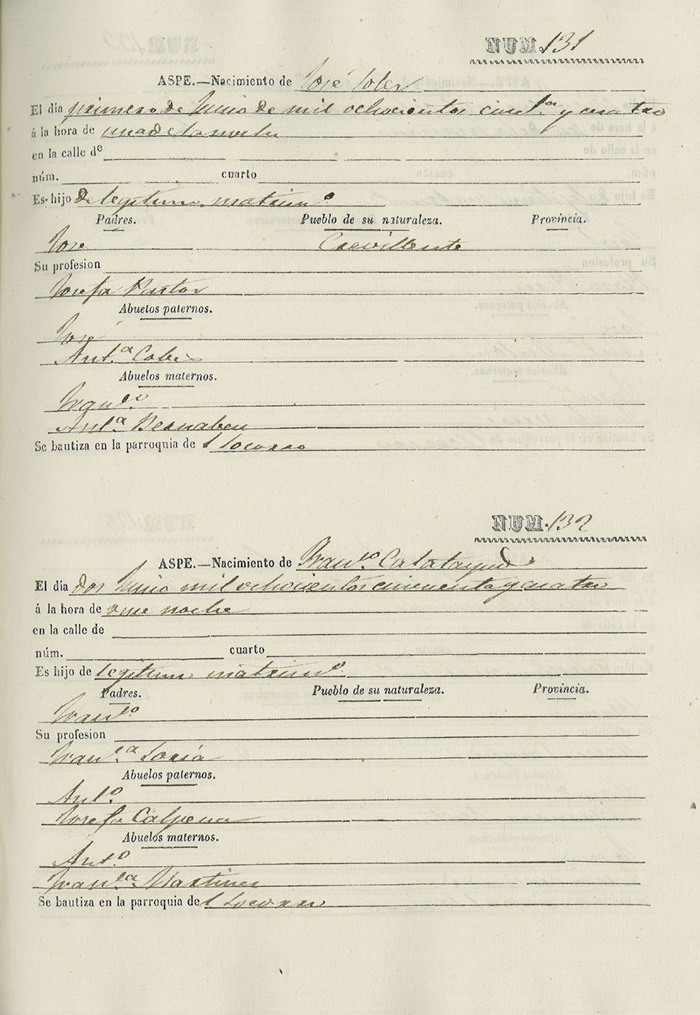 NUM. 131
ASPE.—Nacimiento de José Soler
El día primero de Junio de mil ochocientos cincta y cuatro
á la hora de una de la noche
en la calle de
núm. cuarto
Es hijo de legitimo matrimo
Padres. Pueblo de su naturaleza. Provincia.
Jose Crevillente
Su profesion
Josefa Pastor
Abuelos paternos.
José
Anta
Abuelos maternos.
Franco
Anta Bernabeu
Se bautiza en la parroquia de l Socorro
NUM. 132
ASPE.—Nacimiento de Franco Calatayud
El día dos Junio mil ochocientos cincuenta y cuatro
á la hora de once noche
en la calle de
núm. cuarto
Es hijo de legitimo matrimo
Padres. Pueblo de su naturaleza. Provincia.
Franco
Su profesion
Franca Soria
Abuelos paternos.
Anto
Josefa Calpena
Abuelos maternos.
Anto
Franca Martinez
Se bautiza en la parroquia de l Socorro